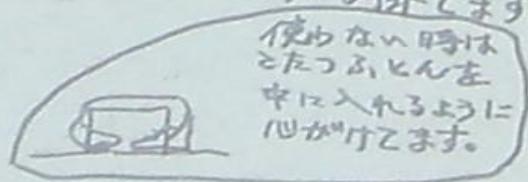 ます
使わない時は
こたつふとんを
中に入れるように
心がけてます。